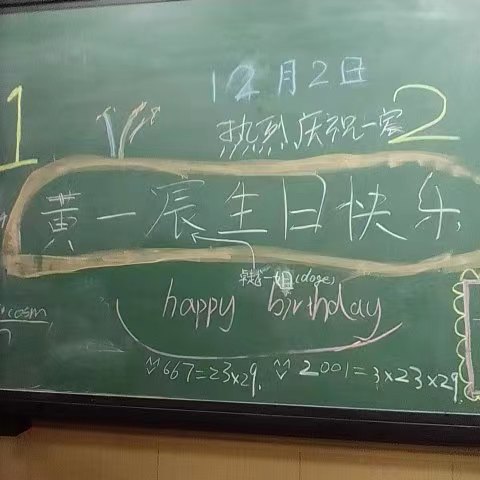 12月2日
1
热烈庆祝一宸
2
黄一辰生日快乐
卓越一姐(doge)
happy birthday
cosm
667=23×29. 2001=3×23×29